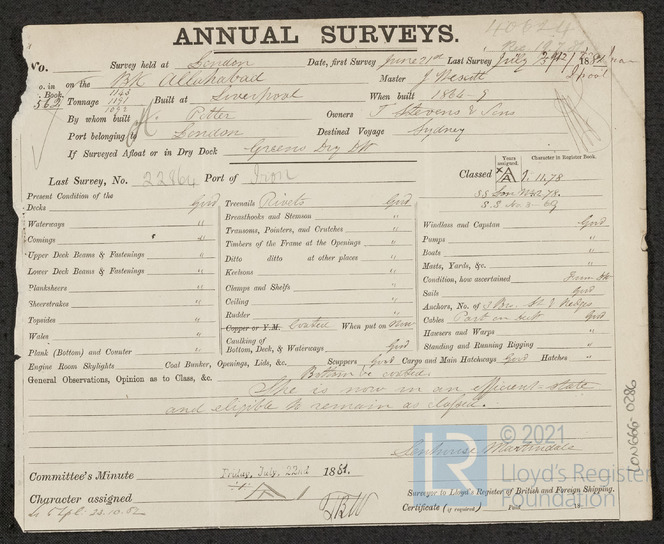 40624
ANNUAL SURVEYS.
No. Survey held at London Date, first Survey June 21st Last Survey July 1881
No. in Book. on the BK Allahabad Master J Nesbitt
562 Tonnage 1143 1191 Built at Liverpool When built 1864-9
By whom built Potter Owners T Stevens & Sons
Port belonging to London Destined Voyage Sydney
If Surveyed Afloat or in Dry Dock Greens Dry Dk
Last Survey, No. 22864 Port of Iron Classed Years assigned. A 1. 11,78 Character in Register Book.
S.S. Lon No 2. 78.
S.S. No. 3 - 69
Present Condition of the
Decks Good
Waterways "
Comings "
Upper Deck Beams & Fastenings "
Lower Deck Beams & Fastenings "
Planksheers "
Sheerstrakes "
Topsides "
Wales "
Plank (Bottom) and Counter "
Treenails Rivets Good
Breasthooks and Stemson "
Transoms, Pointers, and Crutches "
Timbers of the Frame at the Openings "
Ditto ditto at other places "
Keelsons "
Clamps and Shelfs "
Ceiling "
Rudder "
Copper or Y.M. Coated When put on Now
Caulking of
Bottom, Deck, & Waterways Good
Windlass and Capstan Good
Pumps "
Boats "
Masts, Yards, &c. "
Condition, how ascertained From Dk
Sails Good
Anchors, No. of 3 Br. St & Kedges
Cables Part on deck Good
Hawsers and Warps "
Standing and Running Rigging "
Engine Room Skylights Coal Bunker, Openings, Lids, &c. Scuppers Good Cargo and Main Hatchways Good Hatches "
General Observations, Opinion as to Class, &c. Bottom be coated.
She is now in an efficient state
and eligible to remain as classed.
© 2021
LR Lloyd's Register
Foundation
Senhouse Martindale
Surveyor to Lloyd's Register of British and Foreign Shipping.
Committee's Minute Friday, July, 22nd 1881.
Character assigned A 1
Certificate (if required) Paid 18
LON666-0286